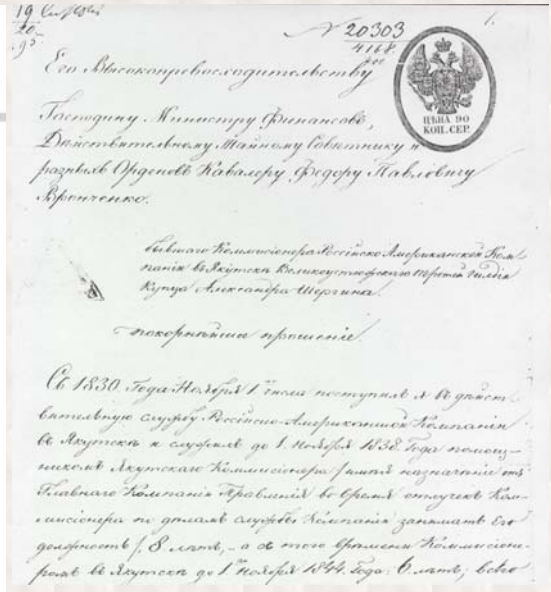 19
20
95
N 20303
4168
1.
Его Высокопревосходительству
ЦѢНА 90
КОП. СЕР.
Господину Министру Финансовъ,
Действительному Тайному Совѣтнику и
разныхъ Орденовъ Кавалеру Федору Павловичу
Вронченко.
бывшаго Коммисіонера Россійско Американской Ком-
паніи въ Якутскѣ Великоустюжскаго третей гильдіи
Купца Александра Шергина.
покорнѣйшее прошеніе
Съ 1830. Года Ноября 1 числа поступилъ я въ дѣйст
вительную службу Россійско-Американской Компаніи
въ Якутскѣ и служилъ до 1. Ноября 1838. Года помощ-
никомъ Якутскаго Коммисіонера /имѣя назначеніе отъ
Главнаго Компаніи Правленія во время отлучекъ Ком-
мисіонера по дѣламъ службы Компаніи занимать Его
должность/. 8 лѣтъ, - а съ того времени Коммисіоне-
ромъ въ Якутскѣ до 1го Ноября 1844. Года; 6 лѣтъ; всего